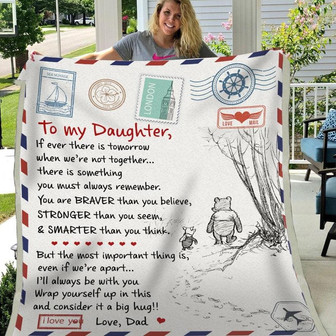 LONDON
LOVE MAIL
To my Daughter,
If ever there is tomorrow
when we're not together...
there is something
you must always remember.
You are BRAVER than you believe,
STRONGER than you seem,
& SMARTER than you think.
But the most important thing is,
even if we're apart...
I'll always be with you
Wrap yourself up in this
and consider it a big hug!!
i love you Love, Dad